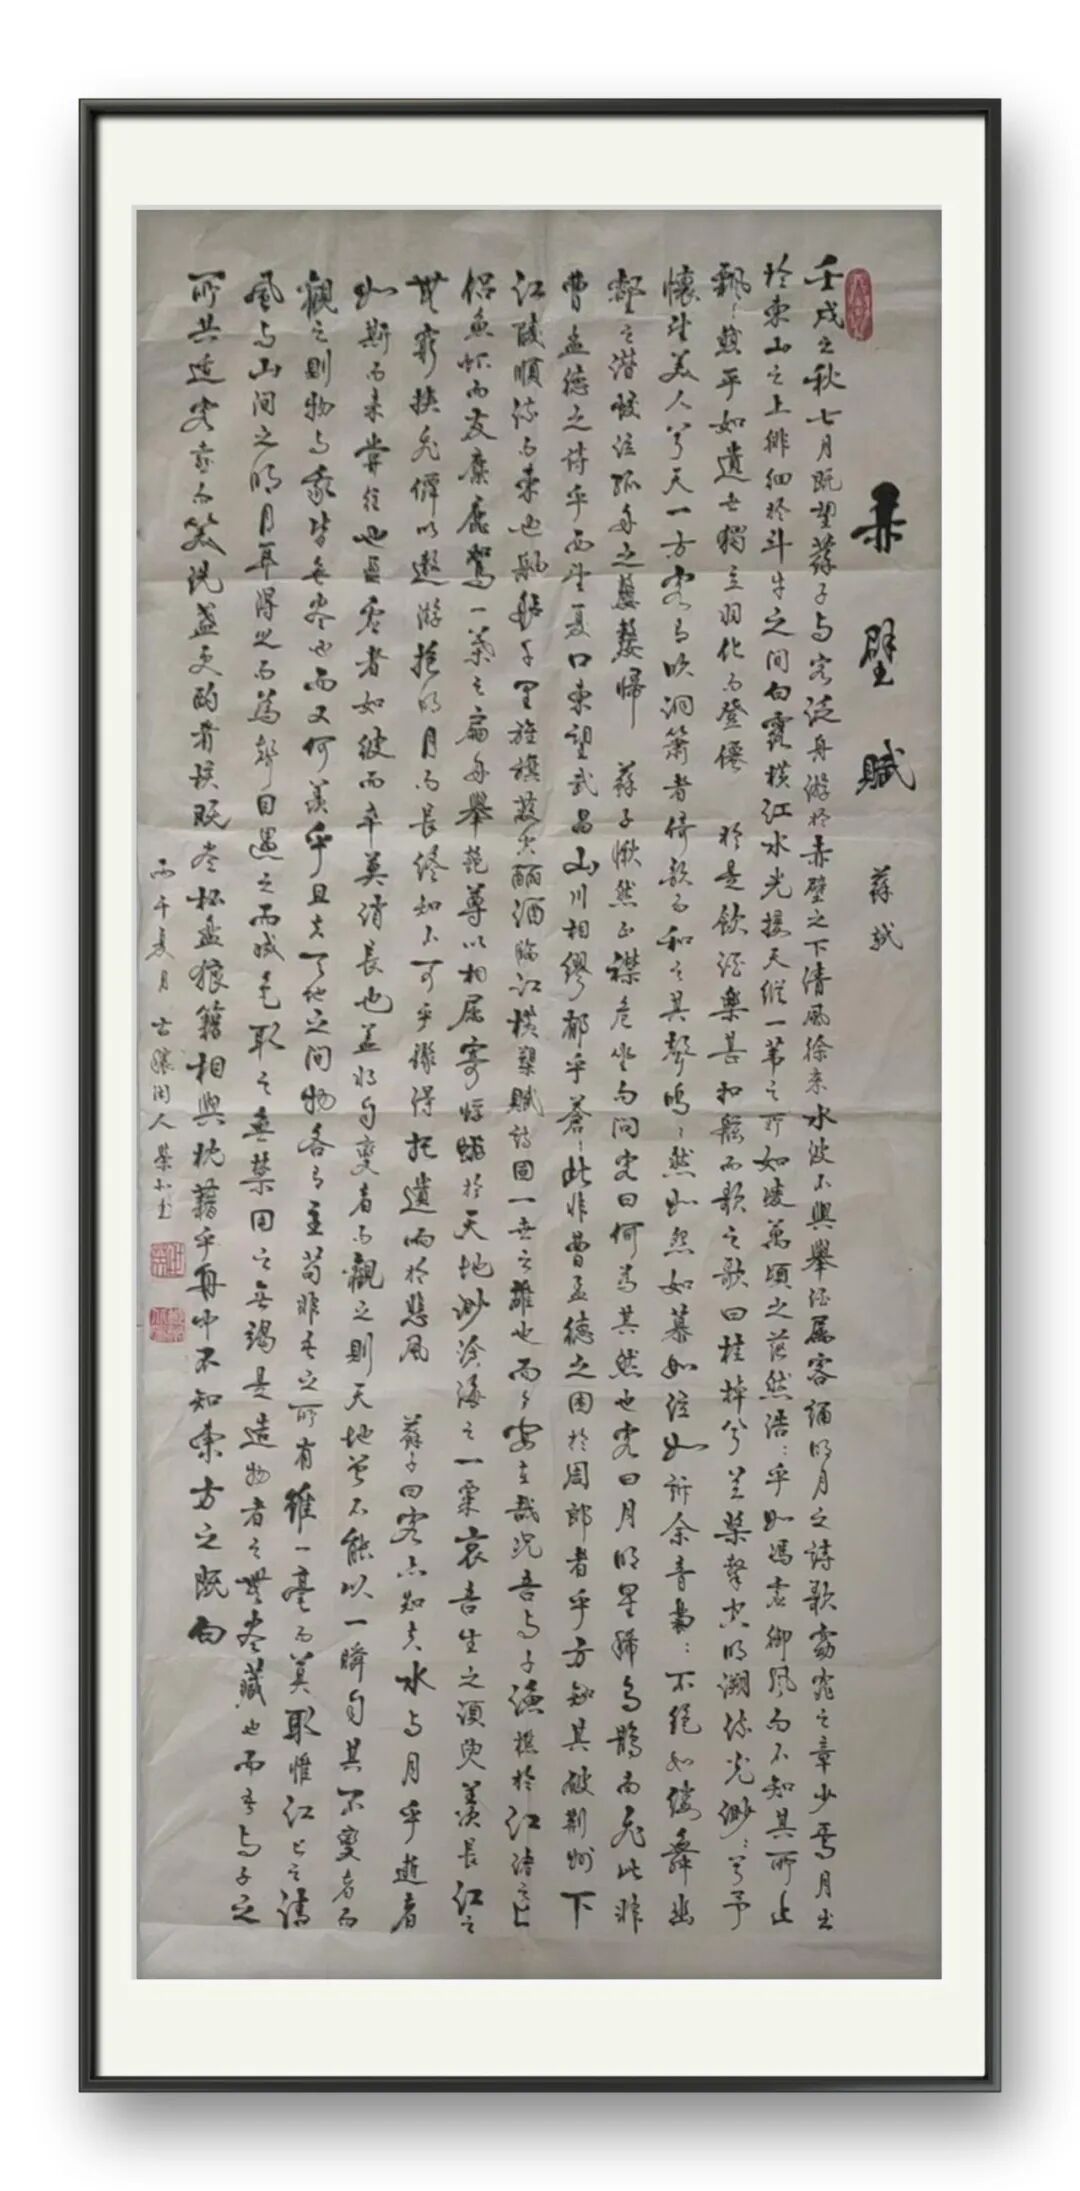 赤壁賦 蘇軾
壬戌之秋七月既望蘇子与客泛舟游於赤壁之下清風徐来水波不興舉酒属客誦明月之詩歌窈窕之章少焉月出
於東山之上徘徊於斗牛之间白露横江水光接天縱一葦之所如凌萬頃之茫然浩〻乎如馮虚御風而不知其所止
飄〻然乎如遺世獨立羽化而登僊 於是飲酒樂甚扣舷而歌之歌曰桂棹兮兰槳擊空明溯流光渺〻兮予
懷望美人兮天一方客有吹洞簫者倚歌而和之其聲嗚〻然如怨如慕如泣如訴余音裊〻不绝如縷舞幽
壑之潜蛟泣孤舟之嫠嫠婦 蘇子愀然正襟危坐而问客曰何為其然也客曰月明星稀烏鵲南飛此非
曹孟德之詩乎西望夏口東望武昌山川相繆郁乎蒼〻此非曹孟德之困於周郎者乎方知其破荆州下
江陵順流而東也舳艫千里旌旗蔽空釃酒臨江横槊賦詩固一世之雄也而今安在哉况吾与子漁樵於江渚之上
侣魚虾而友麋鹿駕一葉之扁舟舉匏尊以相属寄蜉蝣於天地渺滄海之一粟哀吾生之須臾羡長江之
無窮挟飛僊以遨游抱明月而長终知不可乎驟得托遺响於悲風 蘇子曰客亦知夫水与月乎逝者
如斯而未嘗往也盈虚者如彼而卒莫消長也盖将自變者而觀之則天地曾不能以一瞬自其不變者而
觀之則物与我皆無尽也而又何羡乎且夫天地之间物各有主苟非吾之所有雖一毫而莫取惟江上之清
風与山间之明月耳得之而為聲目遇之而成色取之無禁用之不竭是造物者之無尽藏也而吾与子之
所共适客喜而笑洗盏更酌肴核既尽杯盘狼籍相與枕藉乎舟中不知東方之既白
丙午夏月